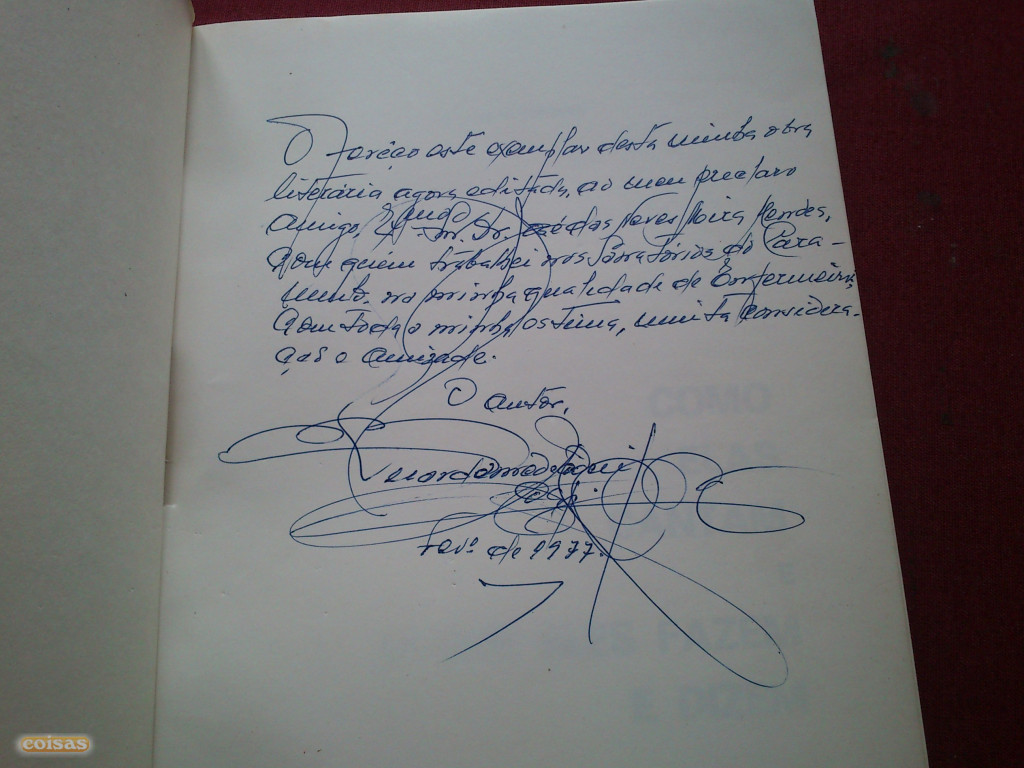 Ofereço este exemplar desta minha obra
literária agora editada, ao meu preclaro
amigo, Exmo. Sr. Dr. José das Neves Moita Mendes,
com quem trabalhei nos Sanatórios do Cara-
mulo, na minha qualidade de Enfermeiro,
Com toda a minha estima, muita considera-
ção e amizade.
O autor,
Fevº. de 1977.
COMO
E
FAZEM
E
coisas